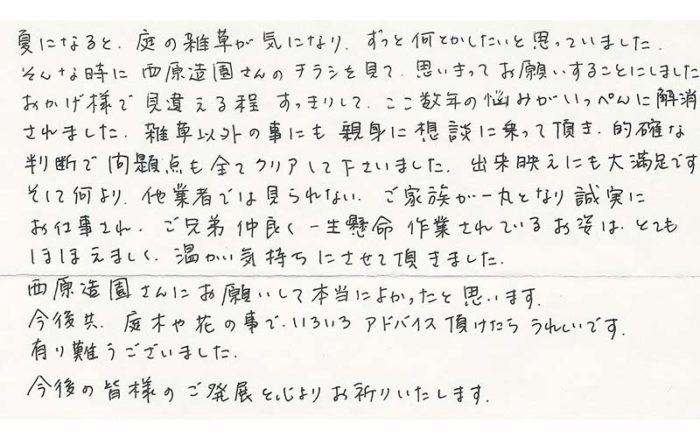 夏になると、庭の雑草が気になり、ずっと何とかしたいと思っていました。
そんな時に西原造園さんのチラシを見て、思いきってお願いすることにしました
おかげ様で見違える程すっきりして、ここ数年の悩みがいっぺんに解消
されました。雑草以外の事にも親身に想談に乗って頂き、的確な
判断で問題点も全てクリアして下さいました。出来映えにも大満足です
そして何より、他業者では見られない、ご家族が一丸となり誠実に
お仕事され、ご兄弟仲良く一生懸命作業されているお姿は、とても
ほほえましく、温かい気持ちにさせて頂きました。
西原造園さんにお願いして本当によかったと思います。
今後共、庭木や花の事で、いろいろアドバイス頂けたらうれしいです。
有り難うございました。
今後の皆様のご発展と心よりお祈りいたします。